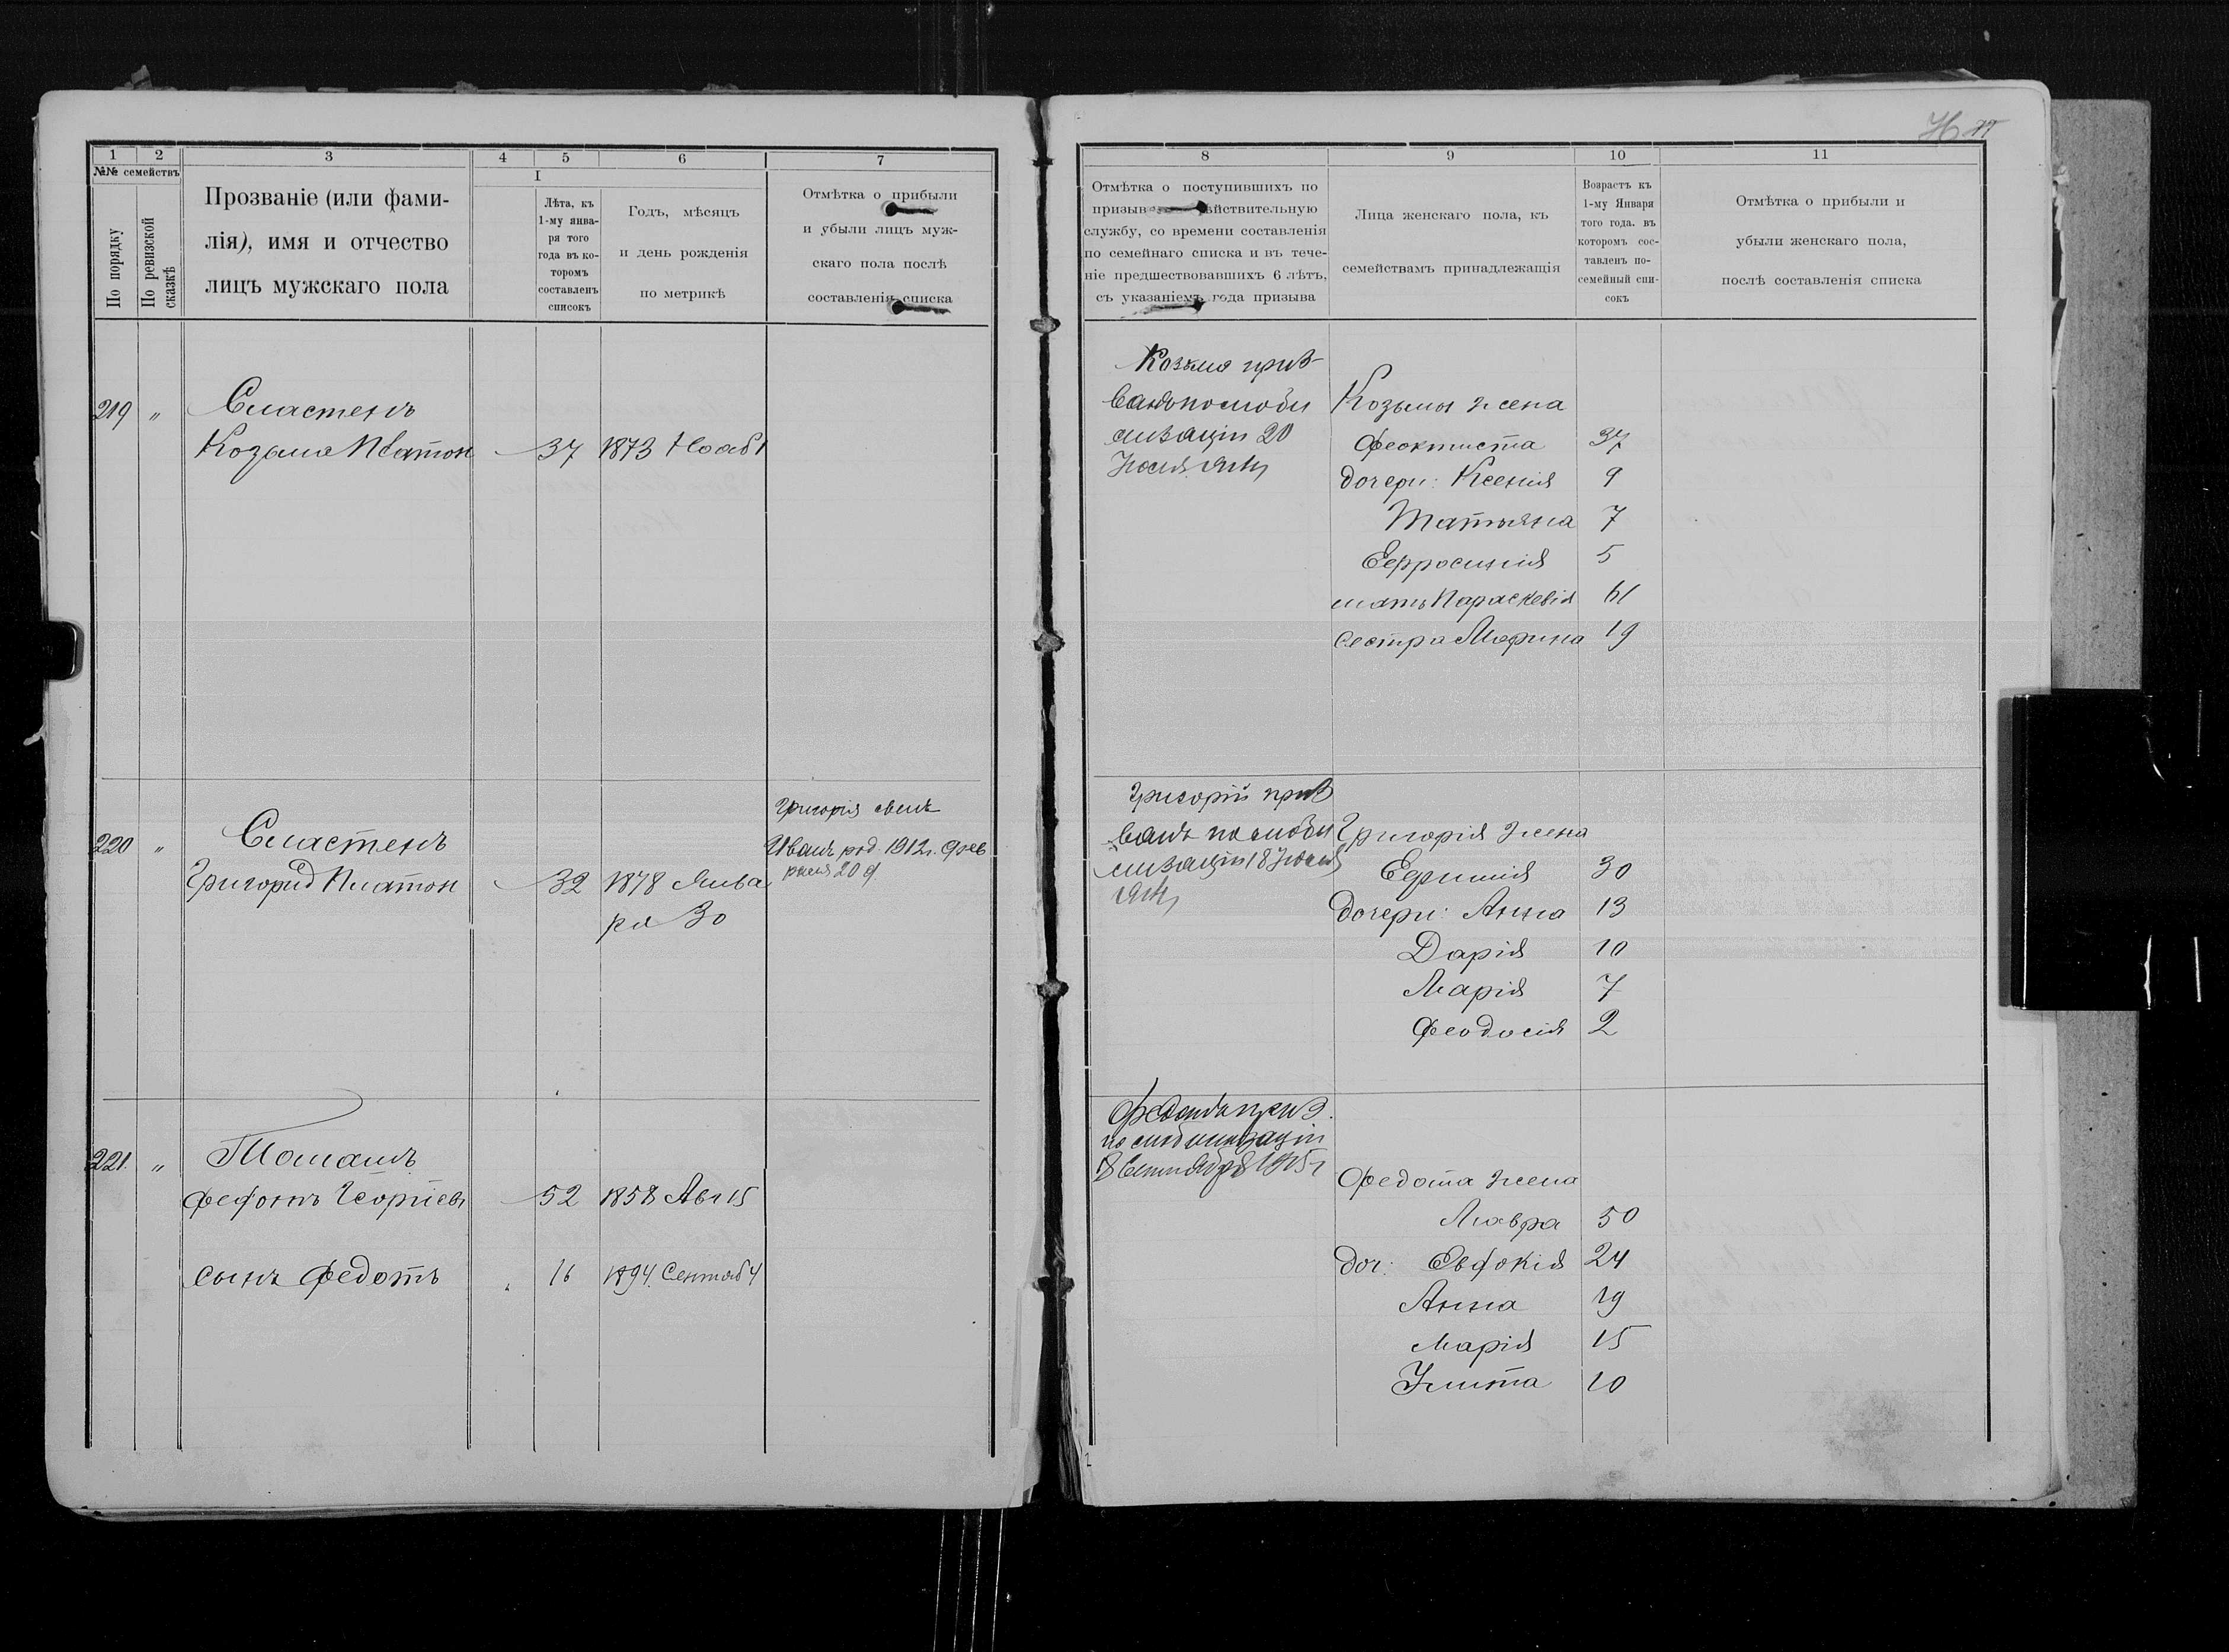 1 2 3 4 5 6 7
№№ семействъ
По порядку
По ревизской сказкѣ
Прозваніе (или фами-
лія), имя и отчество
лицъ мужскаго пола
I
Лѣта, къ
1-му янва-
ря того
года въ ко-
торомъ
составленъ
списокъ
Годъ, мѣсяцъ
и день рожденія
по метрикѣ
Отмѣтка о прибыли
и убыли лицъ муж-
скаго пола послѣ
составленія списка
219 " Сластенъ
Козьма Платон 37 1873 Нояб 1
Григорія сынъ
Иванъ род. 1912 г. Фев
раля 20 д
220 " Сластенъ
Григорій Платон 32 1878 Янва
ря 30
221. "
Георгіев 52 1858 Авг 15
сынъ Федотъ 16 1894 Сентяб 4
8 9 10 11
Отмѣтка о поступившихъ по
призыв йствительную
службу, со времени составленія
по семейнаго списка и въ тече-
ніе предшествовавшихъ 6 лѣтъ,
съ указаніемъ года призыва
Лица женскаго пола, къ
семействамъ принадлежащія
Возрастъ къ
1-му Января
того года. въ
которомъ сос-
тавленъ по-
семейный спи-
сокъ
Отмѣтка о прибыли и
убыли женскаго пола,
послѣ составленія списка
Козьма приз
ванъ по моби
лизаціи 20
Іюля 1914
Козьмы жена
Феоктиста 37
дочери: Ксенія 9
Татьяна 7
Ефросинія 5
мать Параскевія 61
сестра Марина 19
Григорій приз
ванъ по моби
лизаціи 18 Іюля
1914
Григорія жена
Ефимія 30
дочери: Анна 13
Дарія 10
Марія 7
Феодосія 2
Федотъ призв.
по мобилизаціи
8 Сентября 1915 г
Федота жена
Мавра 50
доч: Евдокія 24
Анна 19
Марія 15
Улита 10